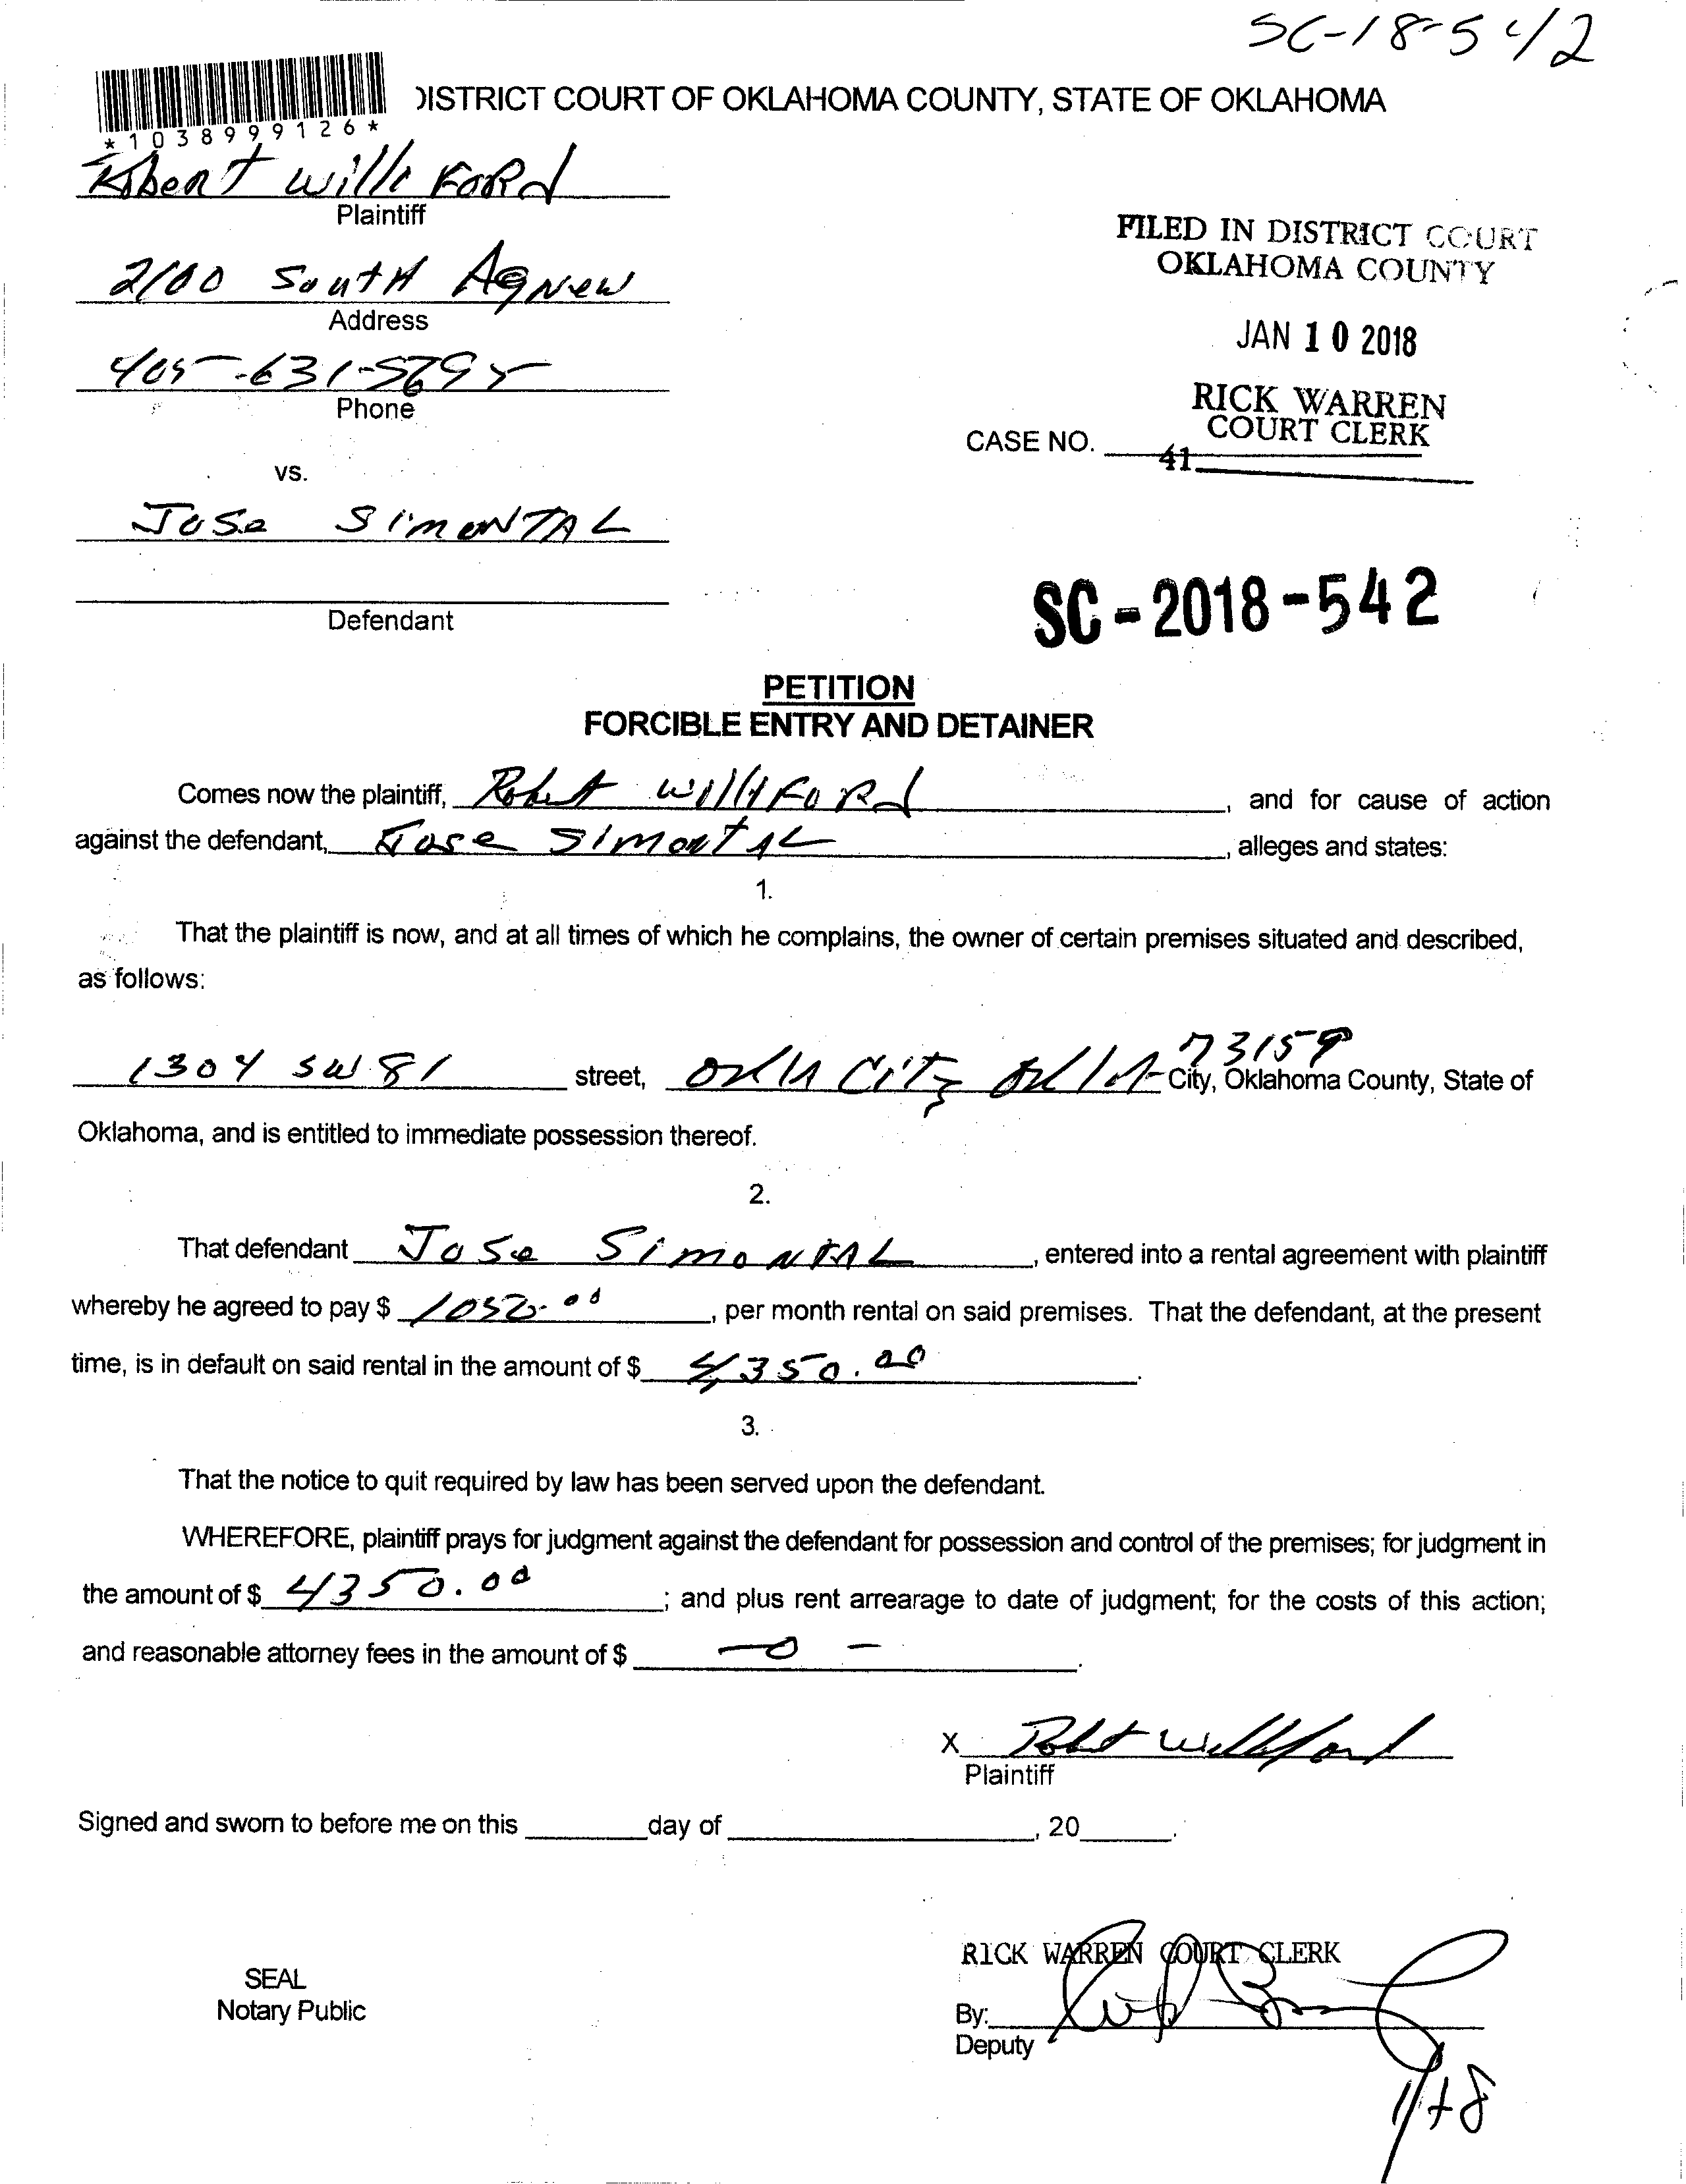 SC-18-542
*1038999126*
DISTRICT COURT OF OKLAHOMA COUNTY, STATE OF OKLAHOMA
Robert Williford
Plaintiff
2100 South Agnew
Address
405-631-5695
Phone
vs.
Jose Simontal
Defendant
FILED IN DISTRICT COURT
OKLAHOMA COUNTY
JAN 10 2018
RICK WARREN
COURT CLERK
CASE NO.
41
SC-2018-542
PETITION
FORCIBLE ENTRY AND DETAINER
Comes now the plaintiff, Robert Williford, and for cause of action
against the defendant, Jose Simontal, alleges and states:
1.
That the plaintiff is now, and at all times of which he complains, the owner of certain premises situated and described,
as follows:
1304 SW 81 street, Okla City Okla 73159 City, Oklahoma County, State of
Oklahoma, and is entitled to immediate possession thereof.
2.
That defendant Jose Simontal, entered into a rental agreement with plaintiff
whereby he agreed to pay $ 1050.00, per month rental on said premises. That the defendant, at the present
time, is in default on said rental in the amount of $ 4,350.00.
3.
That the notice to quit required by law has been served upon the defendant.
WHEREFORE, plaintiff prays for judgment against the defendant for possession and control of the premises; for judgment in
the amount of $ 4350.00; and plus rent arrearage to date of judgment; for the costs of this action;
and reasonable attorney fees in the amount of $ -0-.
X Robert Williford
Plaintiff
Signed and sworn to before me on this ____ day of ____, 20____.
RICK WARREN COURT CLERK
SEAL
Notary Public
By:
Deputy